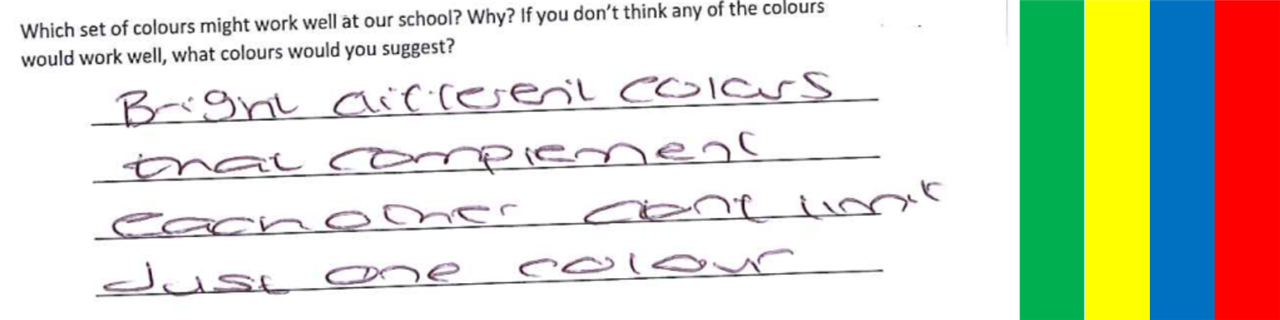 Which set of colours might work well at our school? Why? If you don't think any of the colours
would work well, what colours would you suggest?
Bright different colours
that complement
each other dont limit
Just one colour